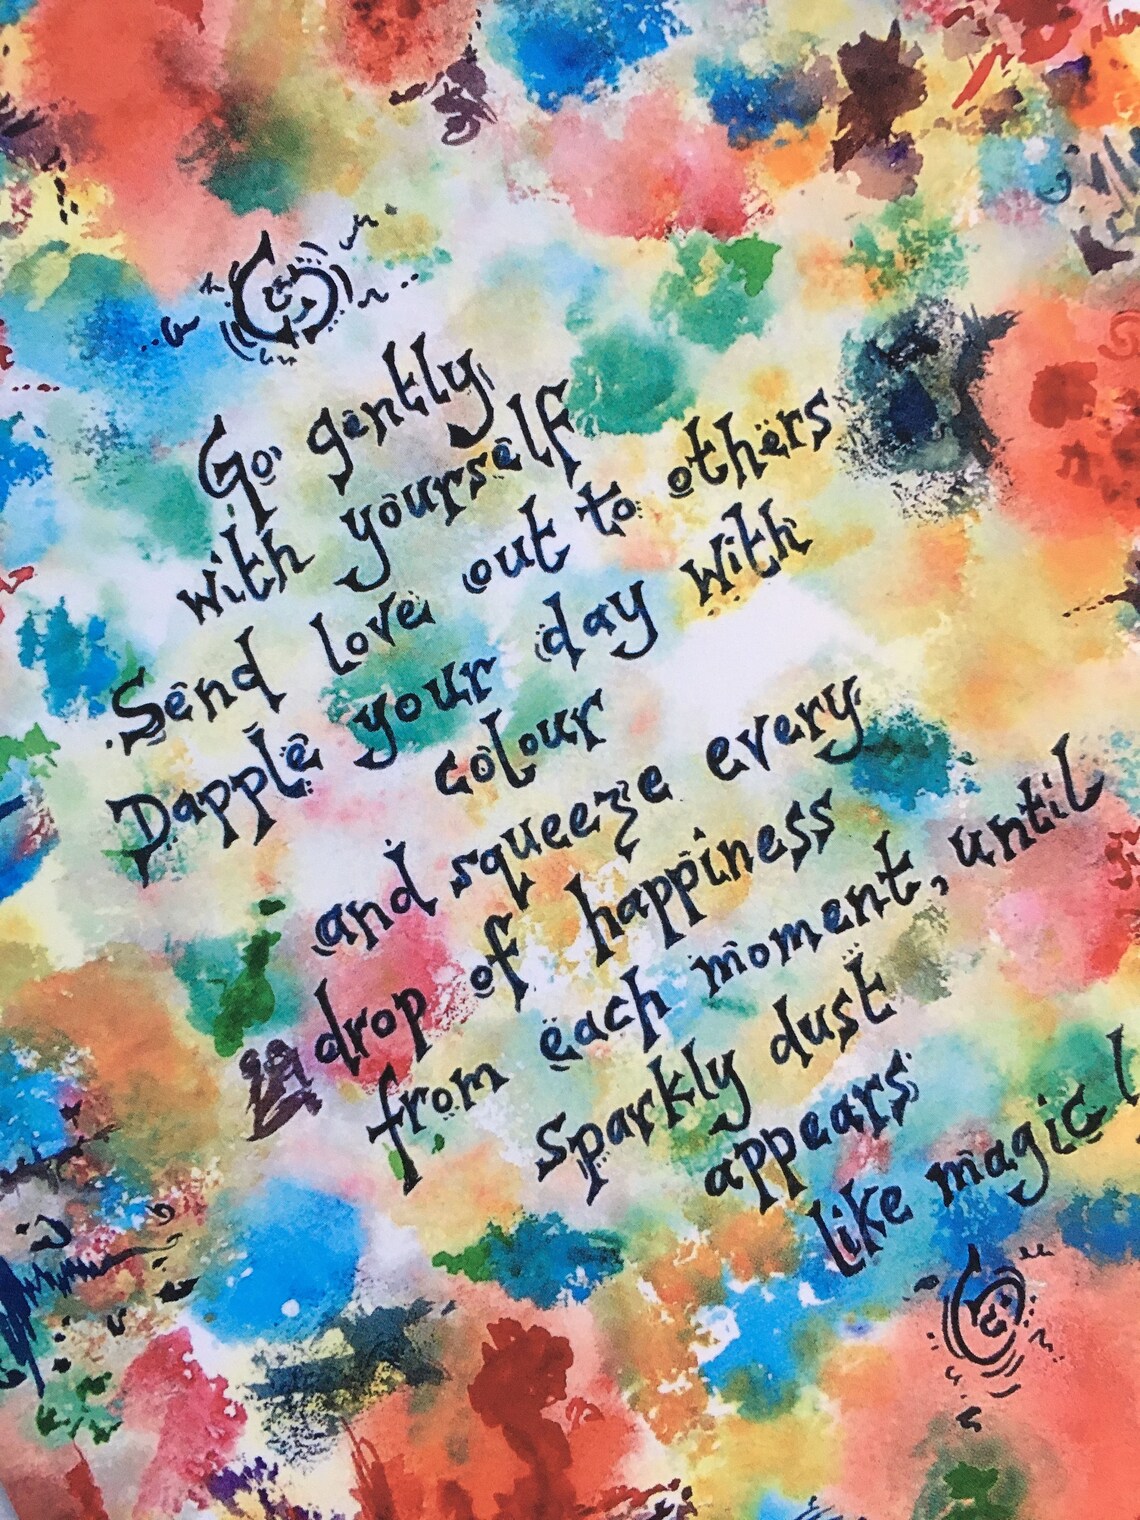 Go gently
with yourself
Send love out to others
Dapple your day with
colour
and squeeze every
drop of happiness
from each moment, until
sparkly dust
appears
like magic!